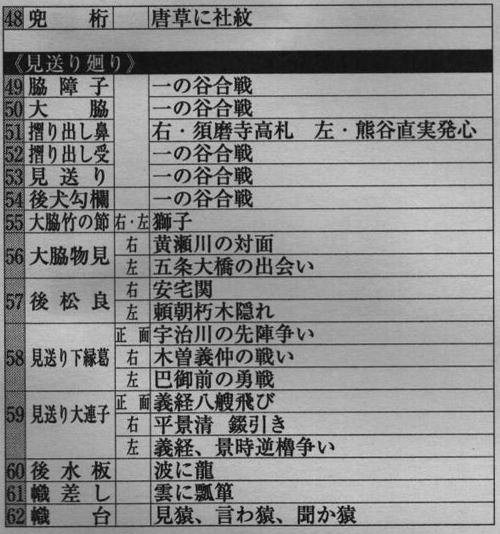 48 兜桁 唐草に社紋
《見送り廻り》
49 脇障子 一の谷合戦
50 大脇 一の谷合戦
51 摺り出し鼻 右・須磨寺高札 左・熊谷直実発心
52 摺り出し受 一の谷合戦
53 見送り 一の谷合戦
54 後犬勾欄 一の谷合戦
55 大脇竹の節 右・左 獅子
56 大脇物見 右 黄瀬川の対面
左 五条大橋の出会い
57 後松良 右 安宅関
左 頼朝朽木隠れ
58 見送り下縁葛 正面 宇治川の先陣争い
右 木曽義仲の戦い
左 巴御前の勇戦
59 見送り大連子 正面 義経八艘飛び
右 平景清 錣引き
左 義経、景時逆櫓争い
60 後水板 波に龍
61 幟差し 雲に瓢箪
62 幟台 見猿、言わ猿、聞か猿